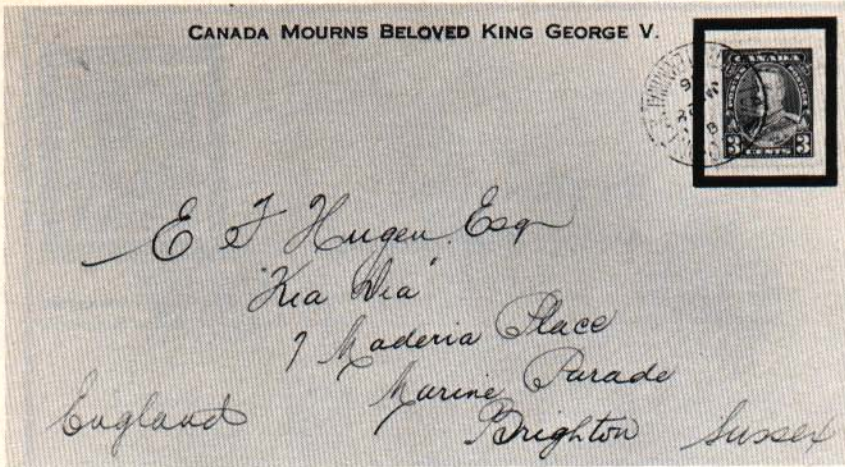 CANADA MOURNS BELOVED KING GEORGE V.
CANADA
POSTES POSTAGE
3 CENTS 3
E F Hugen Esq
"Kia Via"
7 Maderia Place
Marine Parade
Brighton Sussex
England